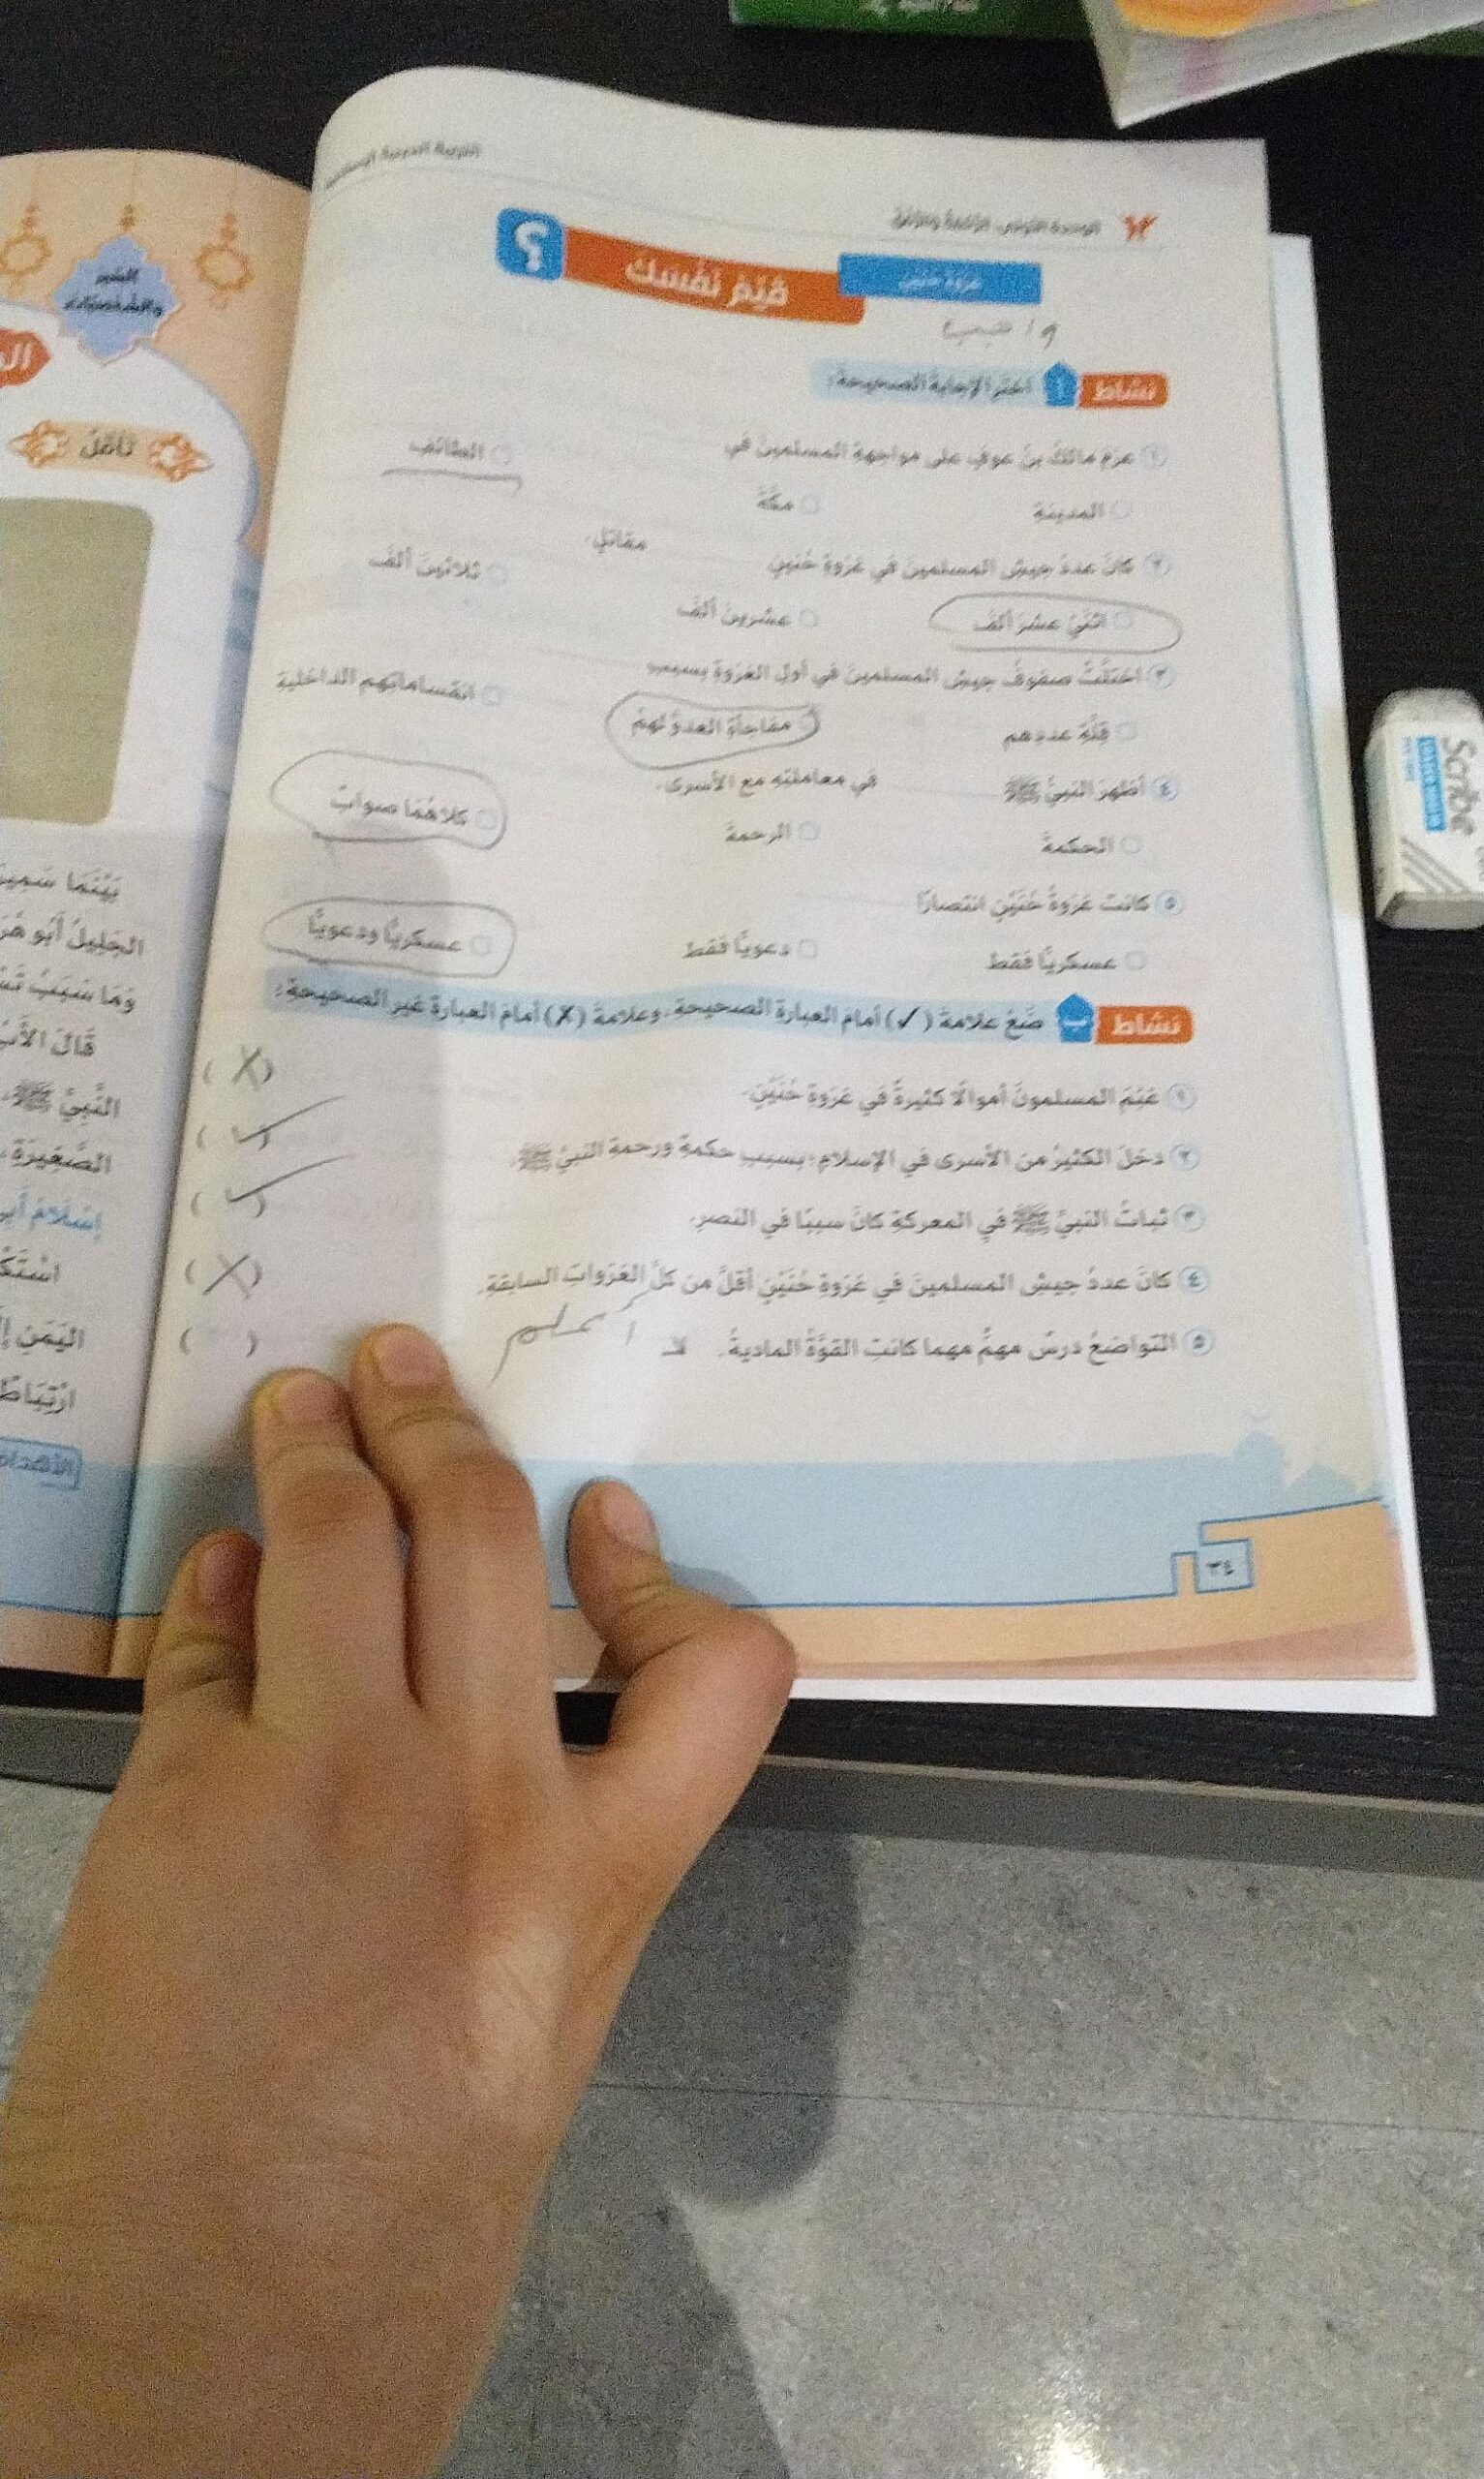 التربية الدينية الإسلامية
الوحدة الأولى
غزوة حنين
قيّم نفسك ؟
واجب
نشاط أ اختر الإجابة الصحيحة:
١ عزم مالك بن عوف على مواجهة المسلمين في
المدينة مكة الطائف
٢ كان عدد جيش المسلمين في غزوة حنين مقاتل.
اثني عشر ألف عشرين ألف ثلاثين ألف
٣ اختلت صفوف جيش المسلمين في أول الغزوة بسبب
قلة عددهم مفاجأة العدو لهم انقساماتهم الداخلية
٤ أظهر النبي ﷺ في معاملته مع الأسرى.
الحكمة الرحمة كلاهما صواب
٥ كانت غزوة حنين انتصارًا
عسكريًا فقط دعويًا فقط عسكريًا ودعويًا
نشاط ب ضع علامة (✓) أمام العبارة الصحيحة، وعلامة (X) أمام العبارة غير الصحيحة:
١ غنم المسلمون أموالًا كثيرة في غزوة حنين. (X)
٢ دخل الكثير من الأسرى في الإسلام؛ بسبب حكمة ورحمة النبي ﷺ. (✓)
٣ ثبات النبي ﷺ في المعركة كان سببًا في النصر. (✓)
٤ كان عدد جيش المسلمين في غزوة حنين أقل من كل الغزوات السابقة. (X)
٥ التواضع درس مهم مهما كانت القوة المادية. لا اعلم ( )
٣٤
السير
والشخصيات
تأمل
بينما
الجليل أبو
وما سبب
قال
النبي ﷺ
الصغيرة
إسلام
اليمن
Scribe